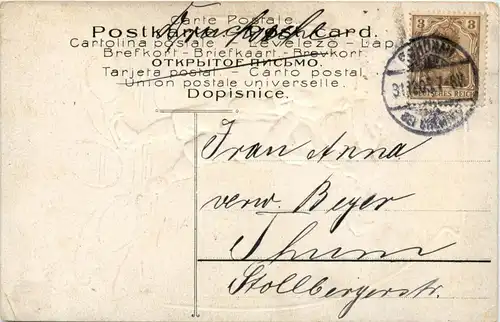 Carte Postale.
Postkarte. Post Card.
Cartolina postale – Levelező – Lap
Brefkort – Briefkaart – Brevkort.
ОТКРЫТОЕ ПИСЬМО.
Tarjeta postal. – Carto postal.
Union postale universelle.
Dopisnice.
3 3
31.12.
Frau Anna
verw. Beyer
Thum
Stollbergerstr.